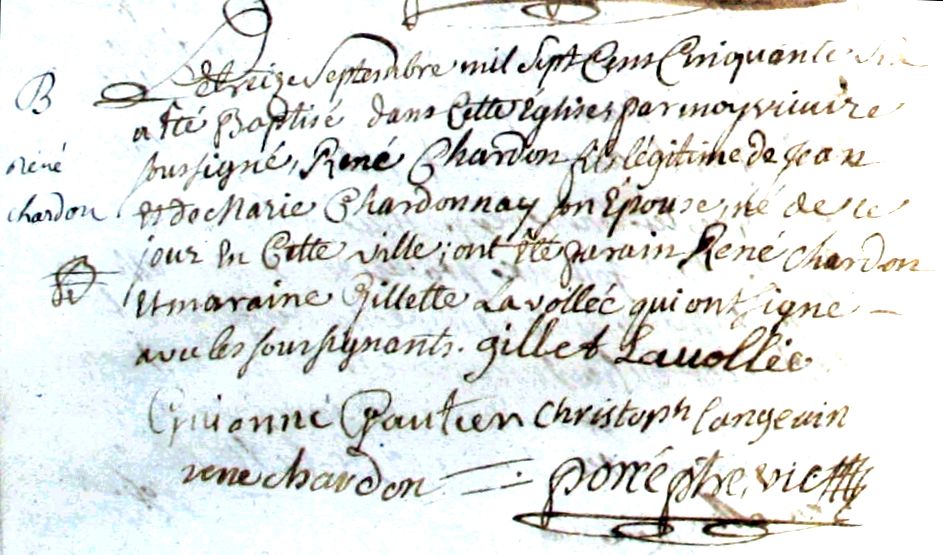 B
René
chardon
Le treize Septembre mil Sept Cens Cinquante Six
a été Baptisé dans Cette église par moy vicaire
soussigné, René Chardon fils légitime de Jean
et de Marie Chardonnay son Epouse, né de ce
jour En Cette ville; ont été parain René chardon
Et maraine Gillette Lavollée qui ont signe
avec les soussignants. gillet Lavollée
Guionne Gautier Christoph langevin
rene chardon porré ptre, vic